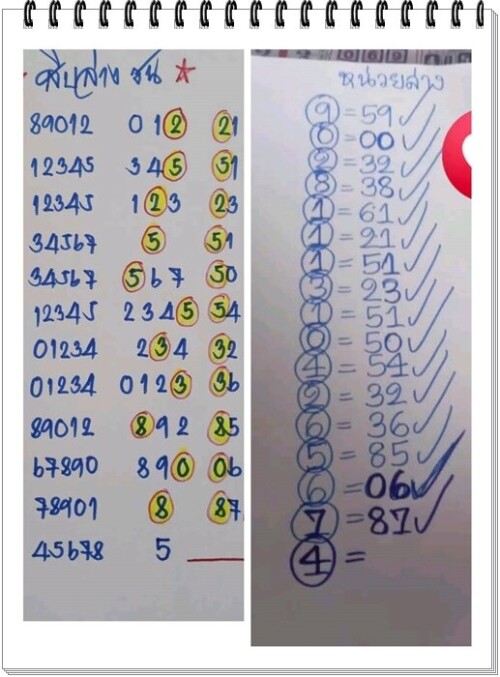 สิบล่าง ชน
89012 012 21
12345 345 51
12345 123 23
34567 5 51
34567 567 50
12345 2345 54
01234 234 32
01234 0123 36
89012 892 85
67890 890 06
78901 8 87
45678 5
หน่วยล่าง
9 = 59
0 = 00
2 = 32
8 = 38
1 = 61
1 = 21
1 = 51
3 = 23
1 = 51
0 = 50
4 = 54
2 = 32
6 = 36
5 = 85
6 = 06
7 = 87
4 =